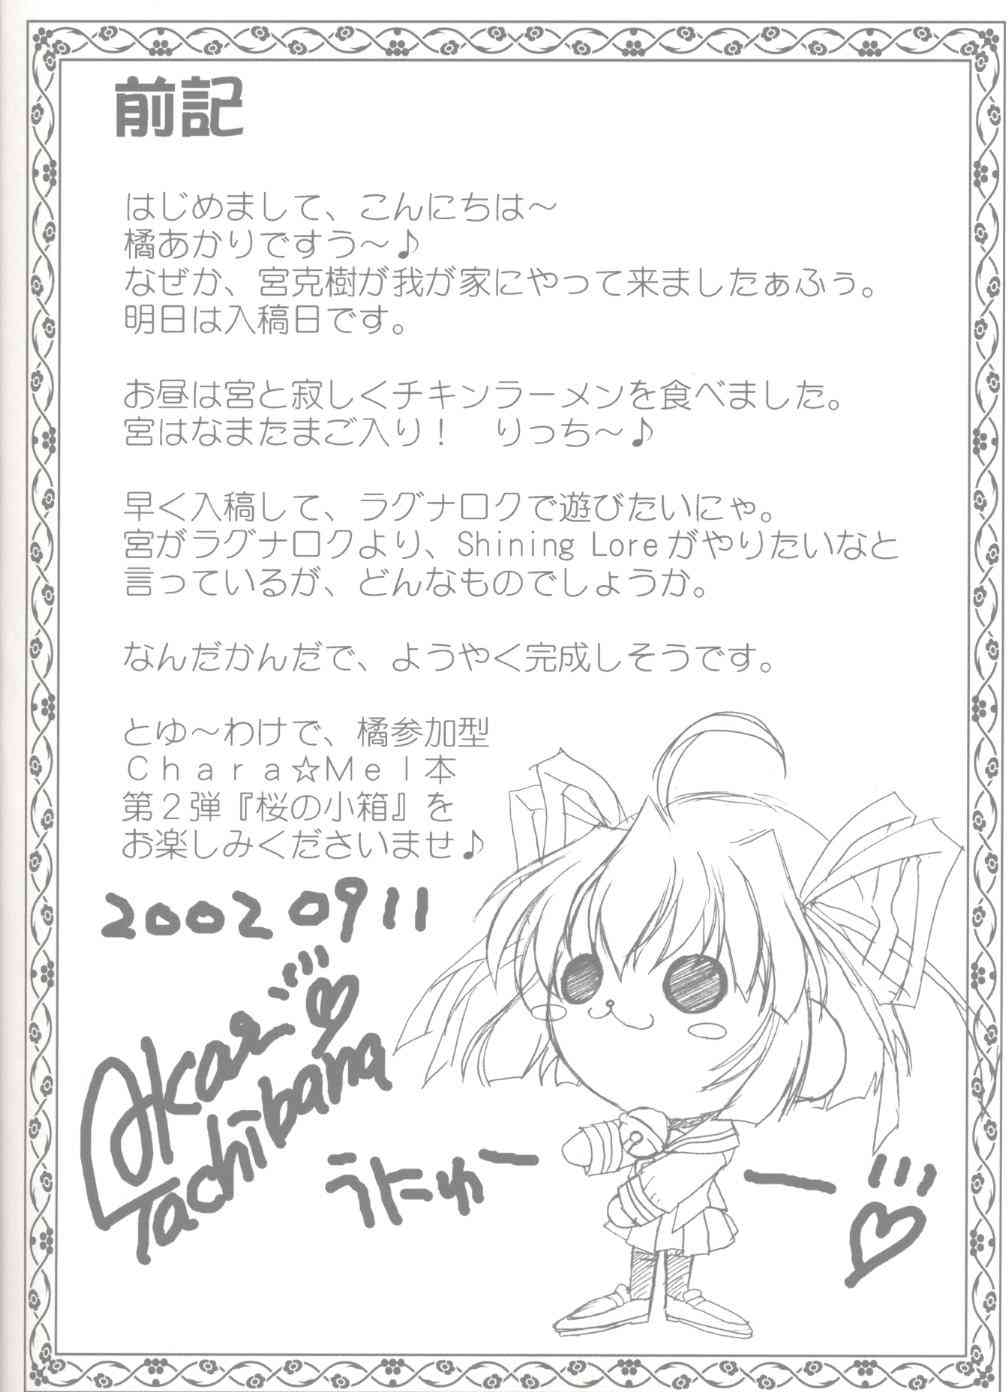 前記
はじめまして、こんにちは～
橘あかりですう～♪
なぜか、宮克樹が我が家にやって来ましたぁふぅ。
明日は入稿日です。
お昼は宮と寂しくチキンラーメンを食べました。
宮はなまたまご入り！　りっち～♪
早く入稿して、ラグナロクで遊びたいにゃ。
宮がラグナロクより、Shining Loreがやりたいなと
言っているが、どんなものでしょうか。
なんだかんだで、ようやく完成しそうです。
とゆ～わけで、橘参加型
Ｃｈａｒａ☆Ｍｅｌ本
第２弾『桜の小箱』を
お楽しみくださいませ♪
20020911
Akari
Tachibana
うにゅーー!!!♡